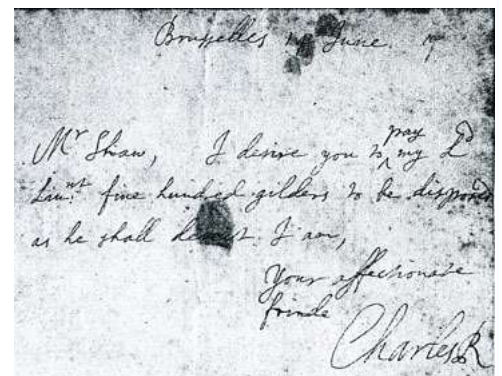 Bruxelles June.
Mr Shaw, I desire you to pay my Ld
Lieunt five hundred gilders to be disposed
as he shall I am,
Your affectionate
frinde
Charles R